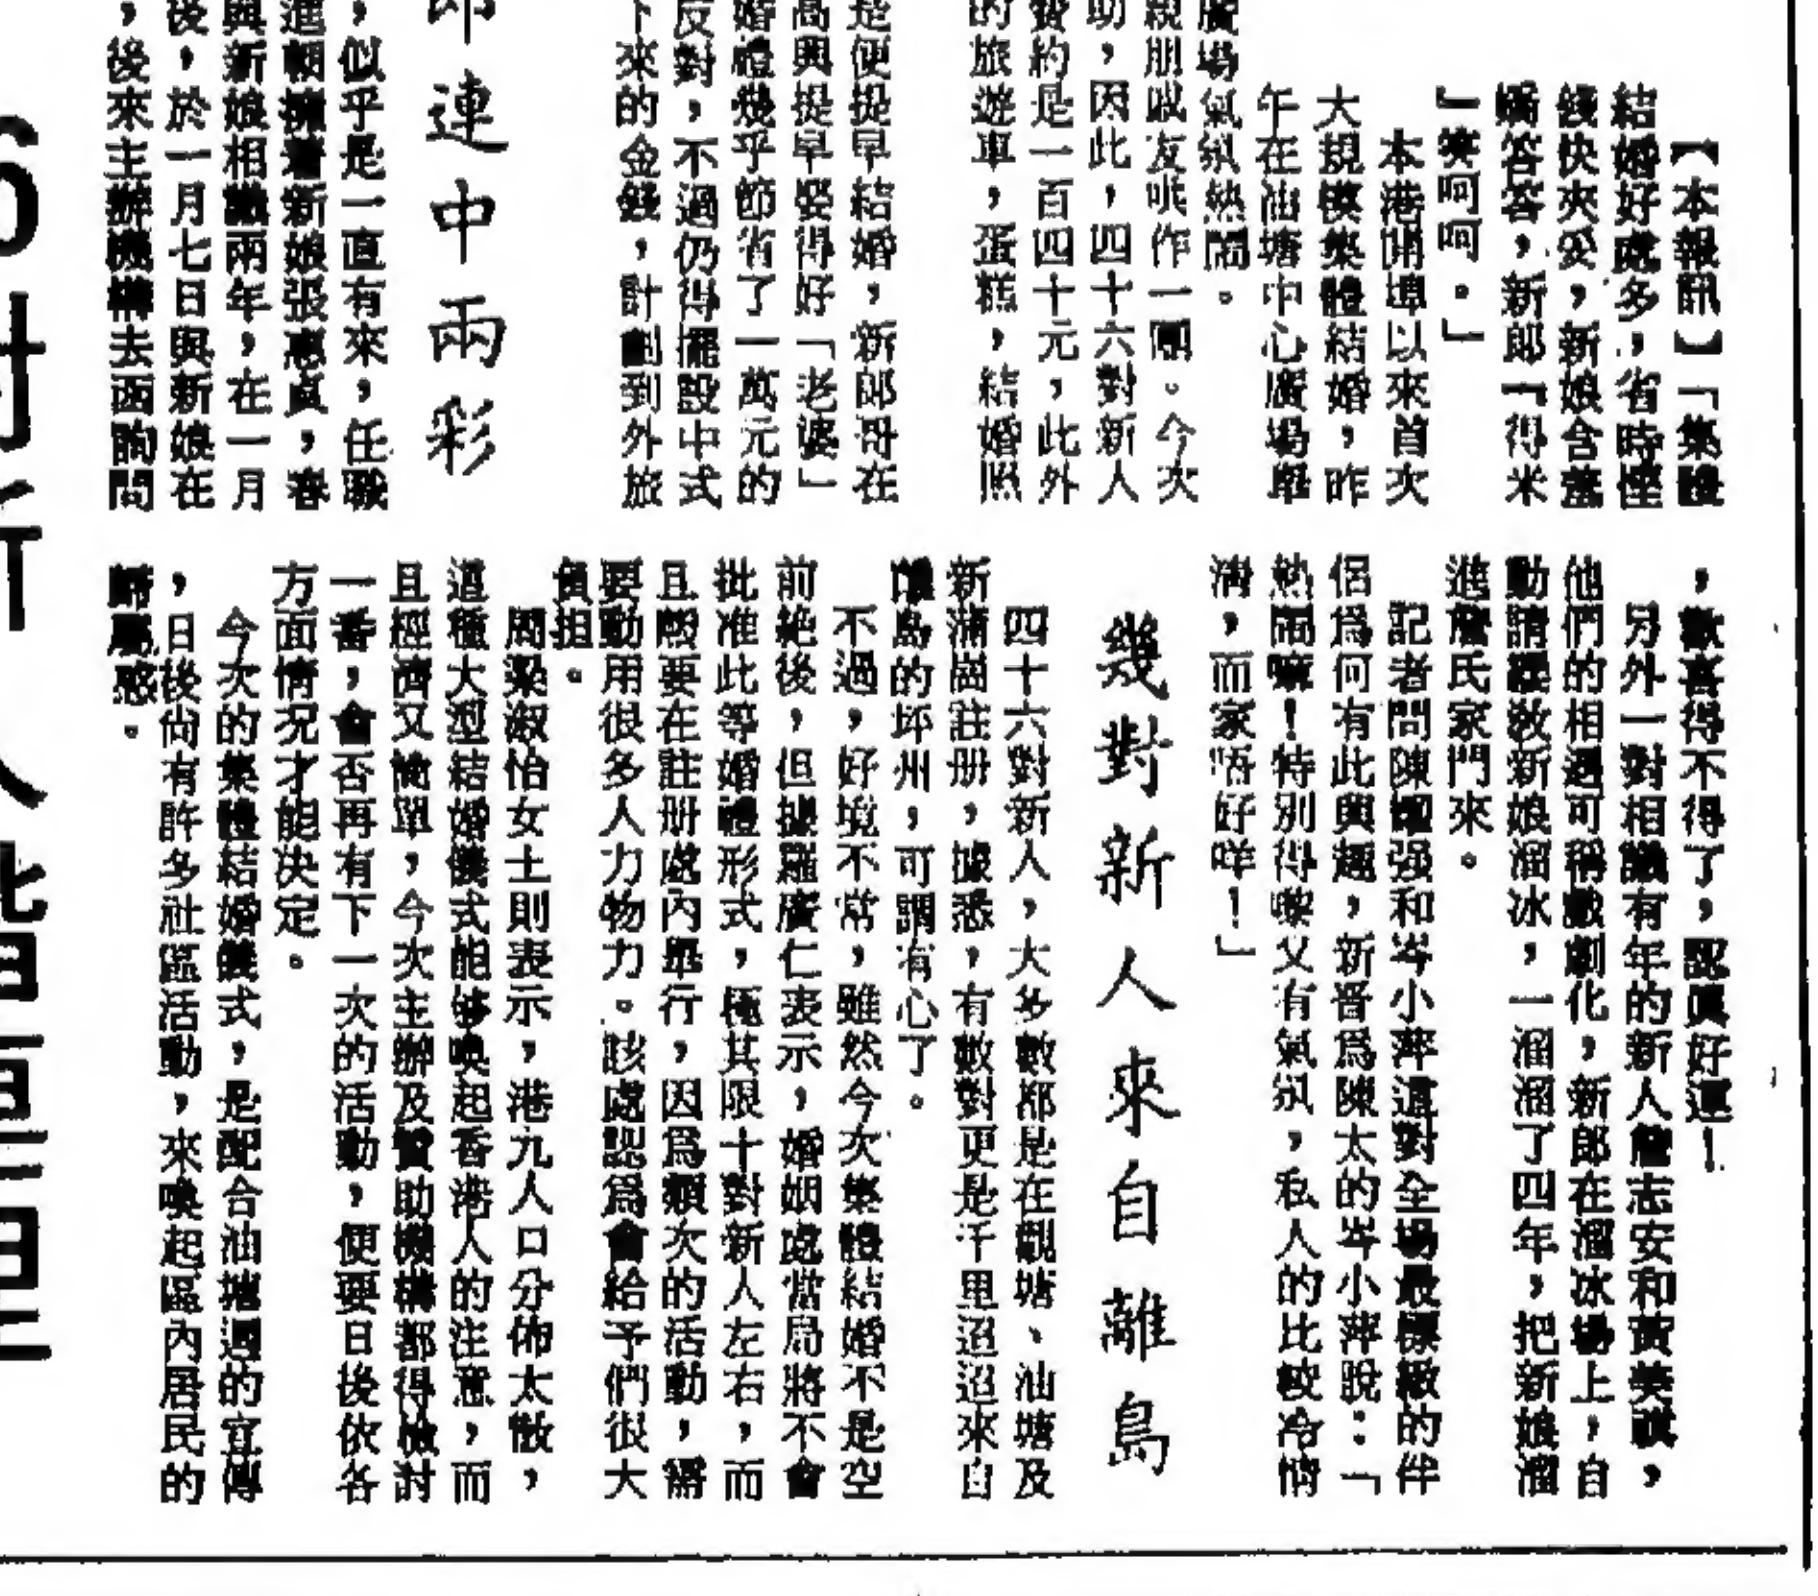 【本報訊】「集體
結婚好處多，省時慳
錢快夾妥，新娘含羞
嬌答答，新郎「得米
」笑呵呵。」
本港開埠以來首次
大規模集體結婚，昨
午在油塘中心廣場舉
廣場氣氛熱鬧。
親朋戚友哄作一團。今次
助，因此，四十六對新人
費約是一百四十元，此外
的旅遊車，蛋糕，結婚照
是便提早結婚，新郎哥在
高興提早娶得好「老婆」
婚禮幾乎節省了一萬元的
反對，不過仍得擺設中式
下來的金錢，計劃到外旅
連中兩彩
，似乎是一直有來，任職
進朝擁着新娘張惠貞，春
與新娘相識兩年，在一月
後，於一月七日與新娘在
，後來主辦機構去函詢問
，歡喜得不得了，認眞好運！
另外一對相識有年的新人詹志安和黃美，
他們的相遇可稱戲劇化，新郎在溜冰場上，自
動請纓敎新娘溜冰，一溜溜了四年，把新娘溜
進詹氏家門來。
記者問陳耀强和岑小萍這對全場最標緻的伴
侶爲何有此興趣，新晋爲陳太的岑小萍說：「
熱鬧嘛！特別得嚟又有氣氛，私人的比較冷悄
淸，而家唔好咩！」
幾對新人來自離島
四十六對新人，大多數都是在觀塘、油塘及
新蒲崗註册，據悉，有數對更是千里迢迢來自
離島的坪州，可謂有心了。
不過，好境不常，雖然今次集體結婚不是空
前絶後，但據羅廣仁表示，婚姻處當局將不會
批准此等婚禮形式，極其限十對新人左右，而
且硬要在註册處內舉行，因爲類次的活動，需
要動用很多人力物力。該處認爲會給予們很大
負担。
周梁淑怡女士則表示，港九人口分佈太散，
這種大型結婚儀式能够喚起香港人的注意，而
且經濟又簡單，今次主辦及贊助機構都得檢討
一番，會否再有下一次的活動，便要日後依各
方面情况才能決定。
今次的集體結婚儀式，是配合油塘週的宣傳
，日後尙有許多社區活動，來喚起區內居民的
歸屬感。
對新人